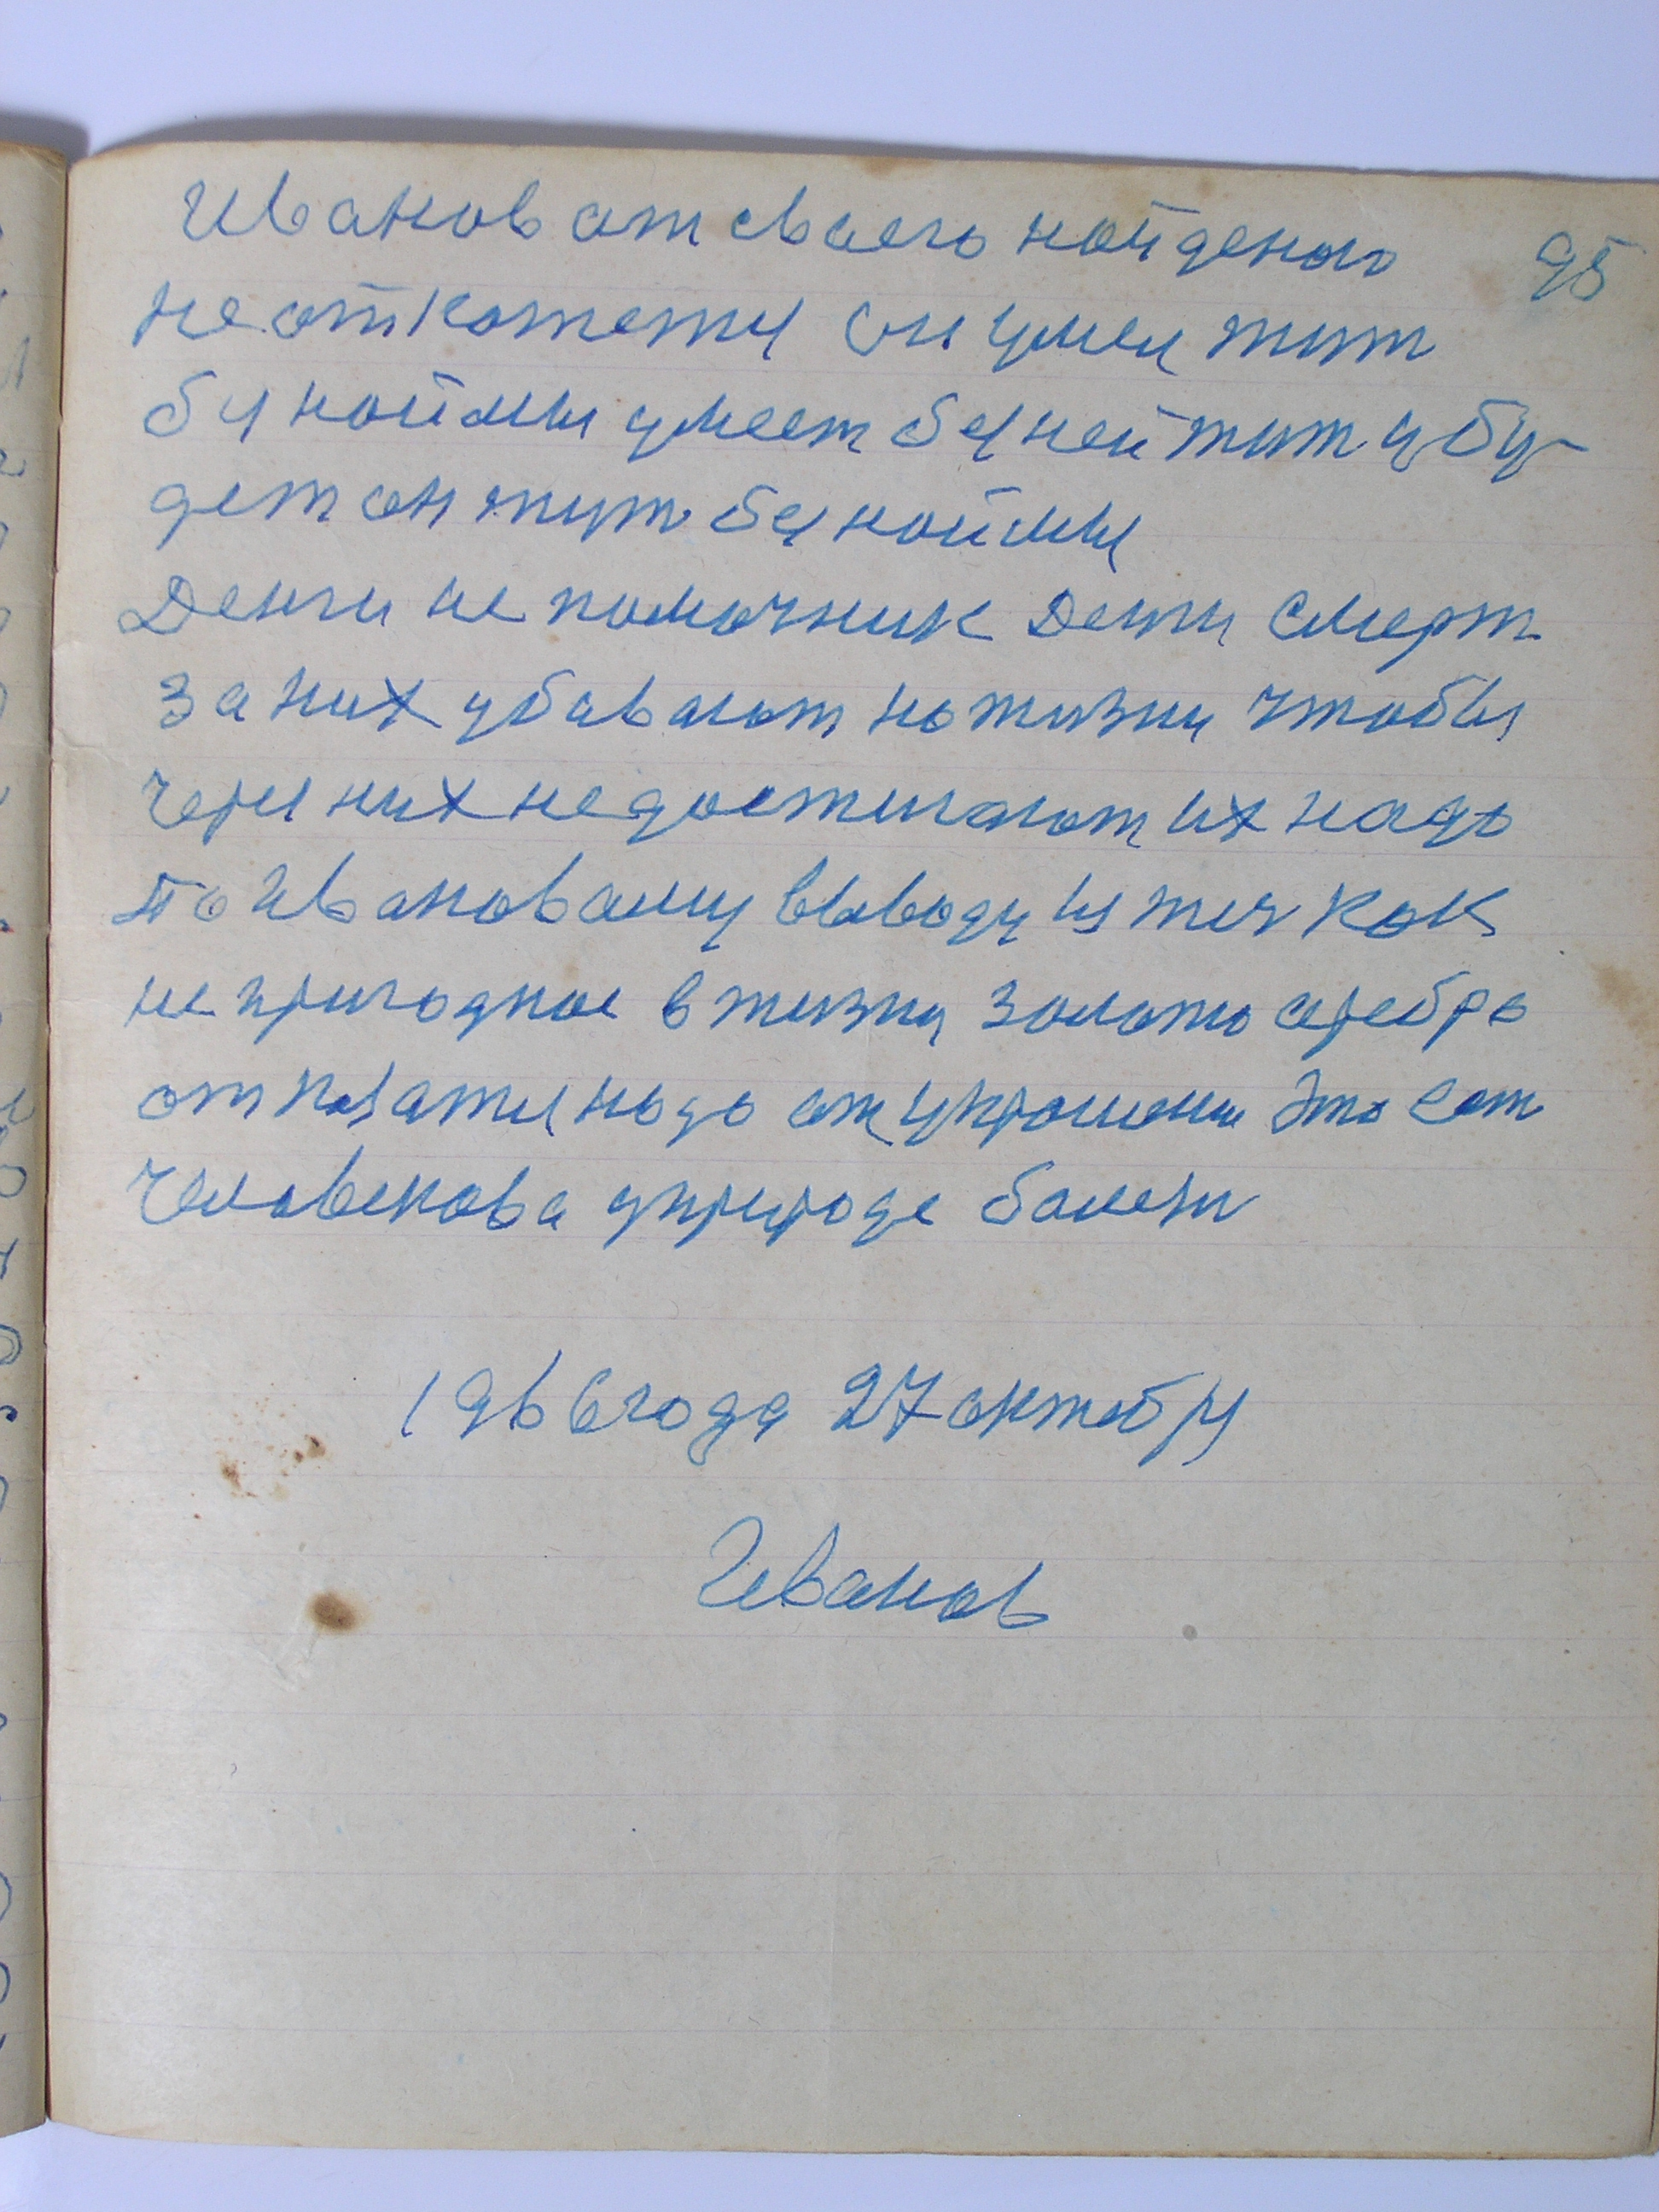 Иванов от сваего найденаго 95
не откажется он умел жит
без нормы умеет без ней жит и бу-
дет он жит без нормы
Денги не помочник Денги смерт
за них убавают но жизни чтобы
через них не достигают их надо
По Ивановаму выводу изжит как
не пригодное в жизни золото серебро
отказатся надо от украшении это ест
человекова у природе болезн
1966 года 27 октября
Иванов